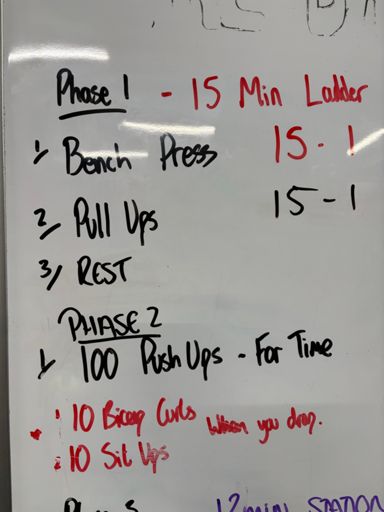 Phase 1 - 15 Min Ladder
1/ Bench Press 15 - 1
2/ Pull Ups 15 - 1
3/ REST
PHASE 2
1/ 100 Push Ups - For Time
10 Bicep Curls When you drop.
10 Sit Ups
12 min STATION